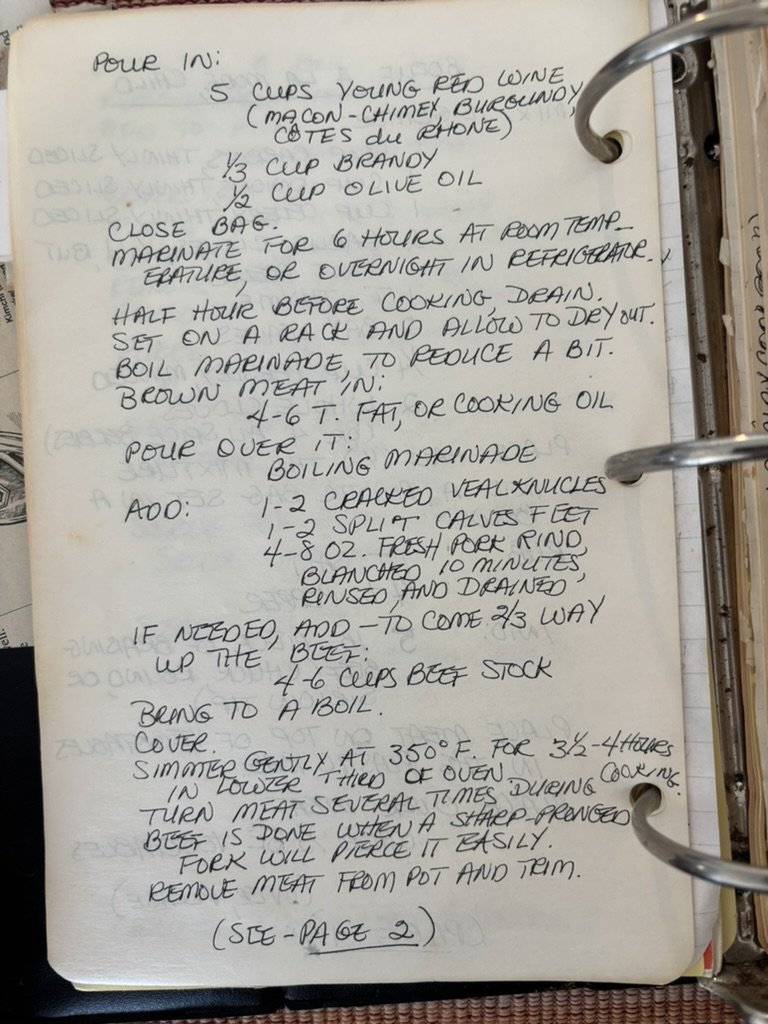 POUR IN:
5 CUPS YOUNG RED WINE
(MAÇON-CHIMEX, BURGUNDY,
CÔTES du RHONE)
1/3 CUP BRANDY
1/2 CUP OLIVE OIL
CLOSE BAG.
MARINATE FOR 6 HOURS AT ROOM TEMP-
ERATURE, OR OVERNIGHT IN REFRIGERATOR.
HALF HOUR BEFORE COOKING, DRAIN.
SET ON A RACK AND ALLOW TO DRY OUT.
BOIL MARINADE, TO REDUCE A BIT.
BROWN MEAT IN:
4-6 T. FAT, OR COOKING OIL
POUR OVER IT:
BOILING MARINADE
ADD: 1-2 CRACKED VEAL KNUCLES
1-2 SPLIT CALVES FEET
4-8 OZ. FRESH PORK RIND,
BLANCHED 10 MINUTES,
RINSED, AND DRAINED
IF NEEDED, ADD - TO COME 2/3 WAY
UP THE BEEF:
4-6 CUPS BEEF STOCK
BRING TO A BOIL.
COVER.
SIMMER GENTLY AT 350° F. FOR 3 1/2-4 HOURS
IN LOWER THIRD OF OVEN.
TURN MEAT SEVERAL TIMES DURING COOKING.
BEEF IS DONE WHEN A SHARP-PRONGED
FORK WILL PIERCE IT EASILY.
REMOVE MEAT FROM POT AND TRIM.
(SEE - PAGE 2)